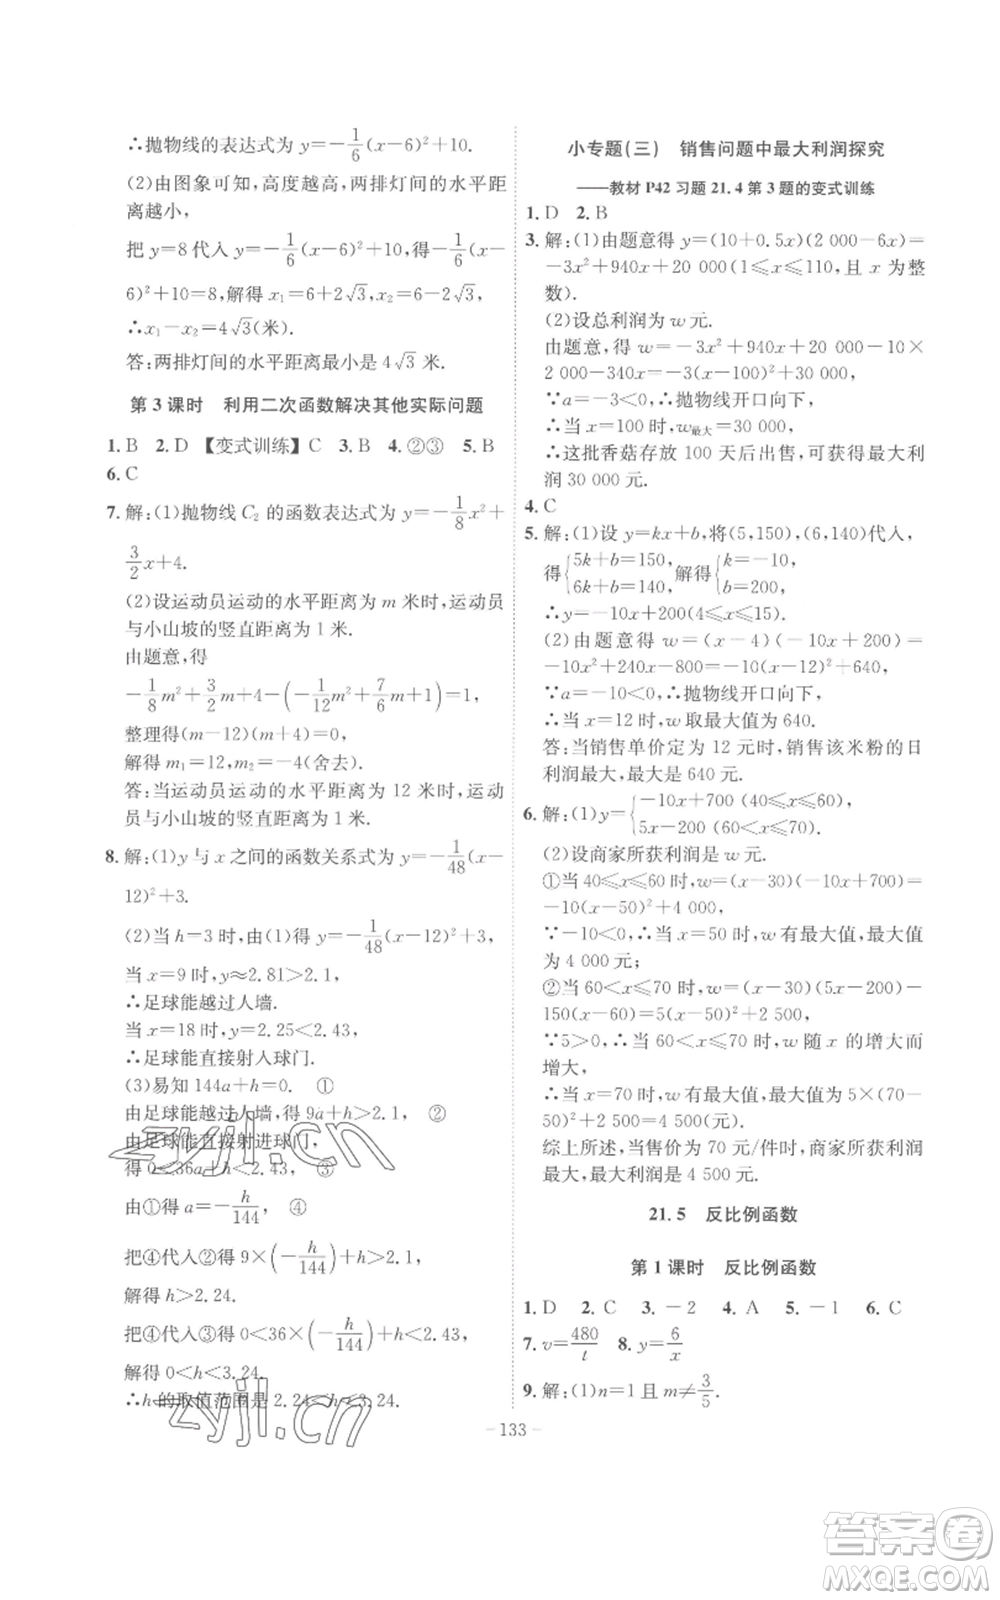 ∴抛物线的表达式为 y=-1/6(x-6)²+10.
(2)由图象可知,高度越高,两排灯间的水平距
离越小,
把 y=8代入 y=-1/6(x-6)²+10,得-1/6(x-
6)²+10=8,解得 x₁=6+2√3,x₂=6-2√3,
∴x₁-x₂=4√3(米).
答:两排灯间的水平距离最小是 4√3 米.
第 3 课时 利用二次函数解决其他实际问题
1. B 2. D 【变式训练】C 3. B 4. ②③ 5. B
6. C
7. 解:(1)抛物线 C₂ 的函数表达式为 y=-1/8x²+
3/2x+4.
(2)设运动员运动的水平距离为 m 米时,运动员
与小山坡的竖直距离为 1 米.
由题意,得
-1/8m²+3/2m+4-(-1/12m²+7/6m+1)=1,
整理得(m-12)(m+4)=0,
解得 m₁=12,m₂=-4(舍去).
答:当运动员运动的水平距离为 12 米时,运动
员与小山坡的竖直距离为 1 米.
8. 解:(1)y 与 x 之间的函数关系式为 y=-1/48(x-
12)²+3.
(2)当 h=3 时,由(1)得 y=-1/48(x-12)²+3,
当 x=9 时,y≈2.81>2.1,
∴足球能越过人墙.
当 x=18 时,y=2.25<2.43,
∴足球能直接射入球门.
(3)易知 144a+h=0. ①
由足球能越过人墙,得 9a+h>2.1, ②
由足球能直接射进球门,
得 0<36a+h<2.43, ③
由①得 a=-h/144, ④
把④代入②得 9×(-h/144)+h>2.1,
解得 h>2.24.
把④代入③得 0<36×(-h/144)+h<2.43,
解得 0<h<3.24.
∴h 的取值范围是 2.24<h<3.24.
小专题(三) 销售问题中最大利润探究
——教材 P42 习题 21.4 第 3 题的变式训练
1. D 2. B
3. 解:(1)由题意得 y=(10+0.5x)(2 000-6x)=
-3x²+940x+20 000(1≤x≤110,且 x 为整
数).
(2)设总利润为 w 元.
由题意,得 w=-3x²+940x+20 000-10×
2 000-340x=-3(x-100)²+30 000.
∵a=-3<0,抛物线开口向下,
∴当 x=100 时,w最大=30 000.
∴这批香菇存放 100 天后出售,可获得最大利
润 30 000 元.
4. C
5. 解:(1)设 y=kx+b,将(5,150),(6,140)代入,
得{5k+b=150, 6k+b=140, 解得{k=-10, b=200,
∴y=-10x+200(4≤x≤15).
(2)由题意得 w=(x-4)(-10x+200)=
-10x²+240x-800=-10(x-12)²+640,
∵a=-10<0,抛物线开口向下,
∴当 x=12 时,w 取最大值为 640.
答:当销售单价定为 12 元时,销售该米粉的日
利润最大,最大是 640 元.
6. 解:(1)y={-10x+700 (40≤x≤60), 5x-200 (60<x≤70).
(2)设商家所获利润是 w 元.
①当 40≤x≤60 时,w=(x-30)(-10x+700)=
-10(x-50)²+4 000,
∵-10<0,∴当 x=50 时,w 有最大值,最大值
为 4 000 元;
②当 60<x≤70 时,w=(x-30)(5x-200)-
150(x-60)=5(x-50)²+2 500,
∵5>0,∴当 60<x≤70 时,w 随 x 的增大而
增大,
∴当 x=70 时,w 有最大值,最大值为 5×(70-
50)²+2 500=4 500(元).
综上所述,当售价为 70 元/件时,商家所获利润
最大,最大利润是 4 500 元.
21.5 反比例函数
第 1 课时 反比例函数
1. D 2. C 3. -2 4. A 5. -1 6. C
7. v=480/t 8. y=6/x
9. 解:(1)n=1 且 m≠3/5.
- 133 -
zyjl.cn
zyjl.cn
答案圈
MXQE.COM